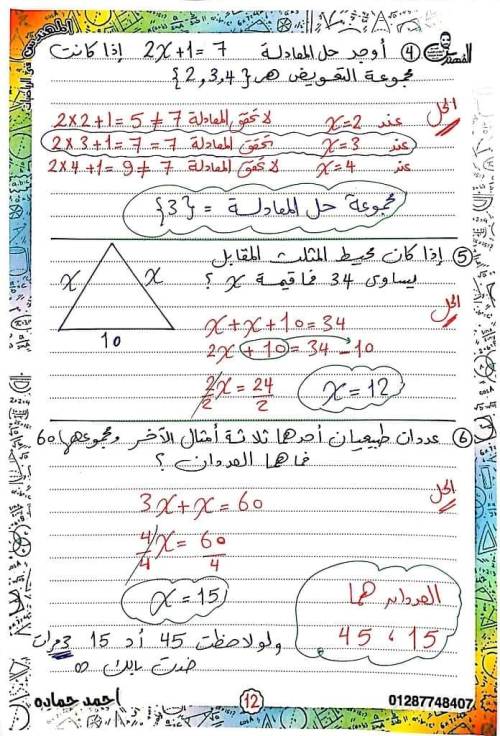 المهندس في الرياضيات
المهندس
④ أوجد حل المعادلة 2x+1=7 إذا كانت
مجموعة التعويض هى {2,3,4}
الحل
عند x=2 لا تحقق المعادلة 2×2+1=5≠7
عند x=3 تحقق المعادلة 2×3+1=7=7
عند x=4 لا تحقق المعادلة 2×4+1=9≠7
مجموعة حل المعادلة = {3}
⑤ إذا كان محيط المثلث المقابل
يساوى 34 فما قيمة x ؟
الحل
x
x
10
x+x+10=34
2x+10=34-10
2x/2=24/2
x=12
⑥ عددان طبيعيان أحدهما ثلاثة أمثال الآخر ومجموعهما 60
فما هما العددان ؟
الحل
3x+x=60
4x/4=60/4
x=15
العددان هما
15 ، 45
ولو لاحظت 45 أد 15 3 مرات
خدت بالك
احمد حماده
12
01287748407